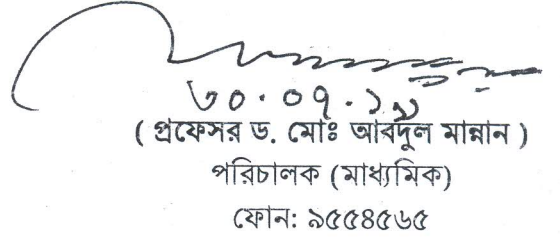 ৩০.০৭.১৯
( প্রফেসর ড. মোঃ আবদুল মান্নান )
পরিচালক (মাধ্যমিক)
ফোন: ৯৫৫৪৫৬৫